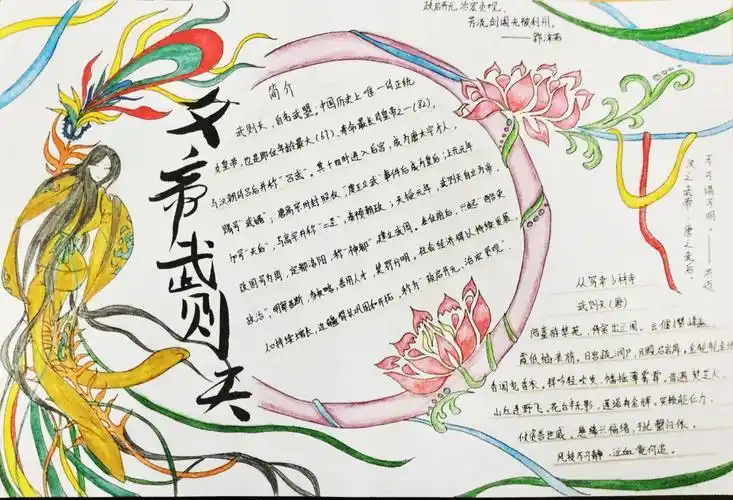 政启开元,治宏贞观,
芳流剑阁光被利州。
——郭沫若
女帝武则天
简介
武则天,自名武曌。中国历史上唯一的正统
女皇帝,也是即位年龄最大(67)、寿命最长的皇帝之一(82)。
与汉朝的吕后并称“吕武”。其十四时进入后宫,成为唐太宗才人,
赐号“武媚”;唐高宗时封昭仪,“废王立武”事件后成为皇后;上元元年
加号“天后”,与高宗并称“二圣”,参预朝政;天授元年,武则天自立为帝,
改国号为周,定都洛阳,称“神都”,建立武周。
政治,明察善断,多权略,善用人才,奖罚分明,社会经济得以持续发展,
人口持续增长,边疆得以巩固和开拓,称为“政启开元,治宏贞观”。
不可谓不明。——洪迈
汉之武帝,唐之武后,
从驾幸少林寺
武则天(唐)
陪銮游禁苑,侍赏出兰闱。云偃攒峰盖,
霞低插浪旂。日宫疏涧户,月殿启岩扉。金轮转金地,
香阁曳香衣。铎吟轻吹发,幡摇薄雾霏。昔遇焚芝火,
山红连野飞。花台无半影,莲塔有金辉。实赖能仁力,
攸资善世威。慈缘兴福绪,于此罄归依。
风枝不可静,泣血竟何追。